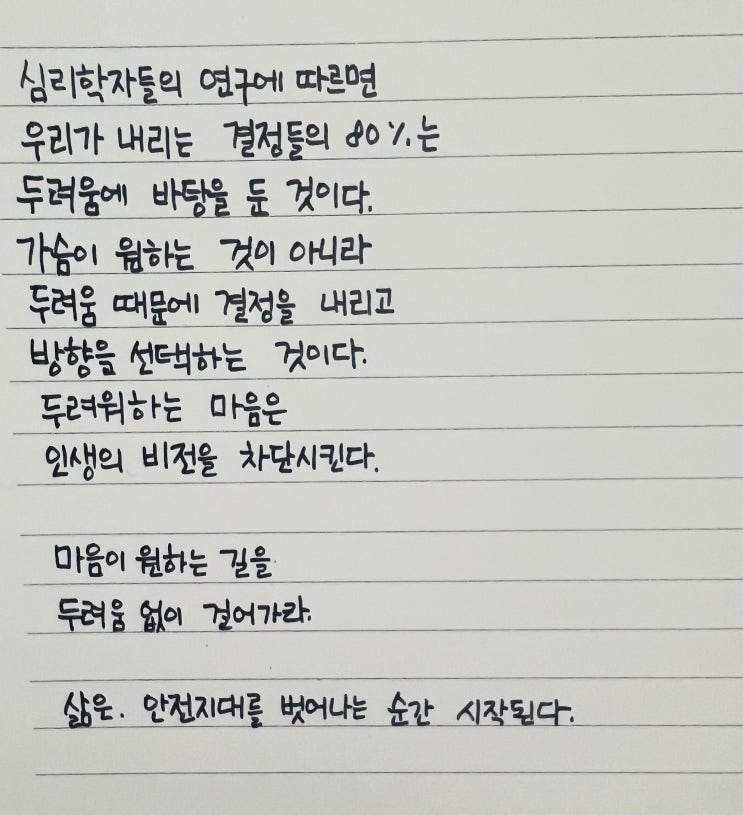 심리학자들의 연구에 따르면
우리가 내리는 결정들의 80%는
두려움에 바탕을 둔 것이다.
가슴이 원하는 것이 아니라
두려움 때문에 결정을 내리고
방향을 선택하는 것이다.
두려워하는 마음은
인생의 비전을 차단시킨다.
마음이 원하는 길을
두려움 없이 걸어가라.
삶은. 안전지대를 벗어나는 순간 시작된다.